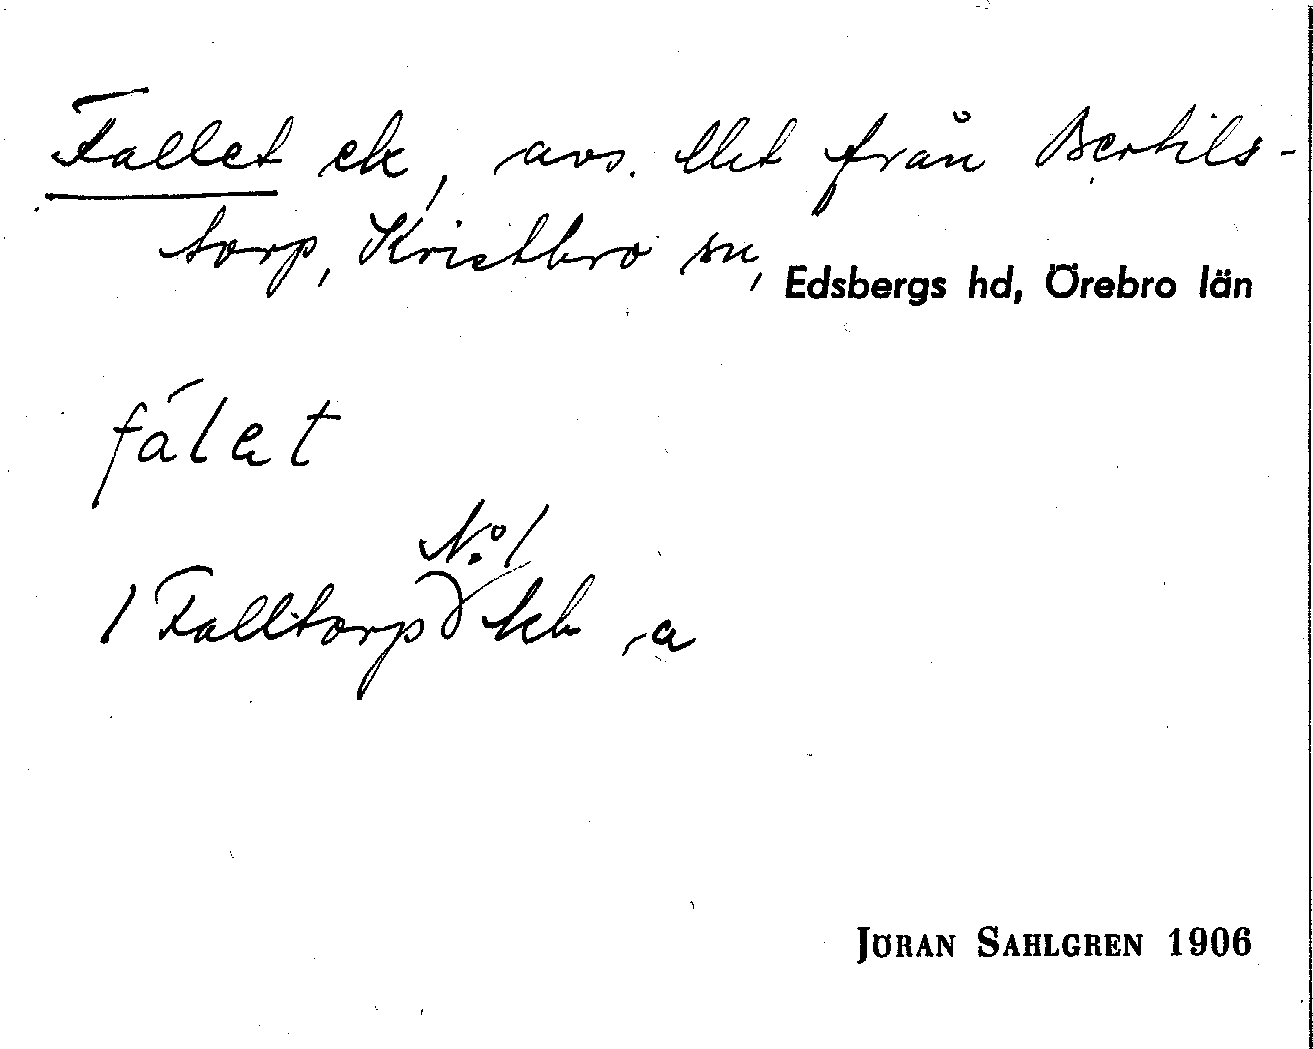 Fallet ek, avs. llet från Bertils-
torp, Kristbro sn,
Edsbergs hd, Örebro län
fálet
No. 1
1 Falltorp kb
JÖRAN SAHLGREN 1906